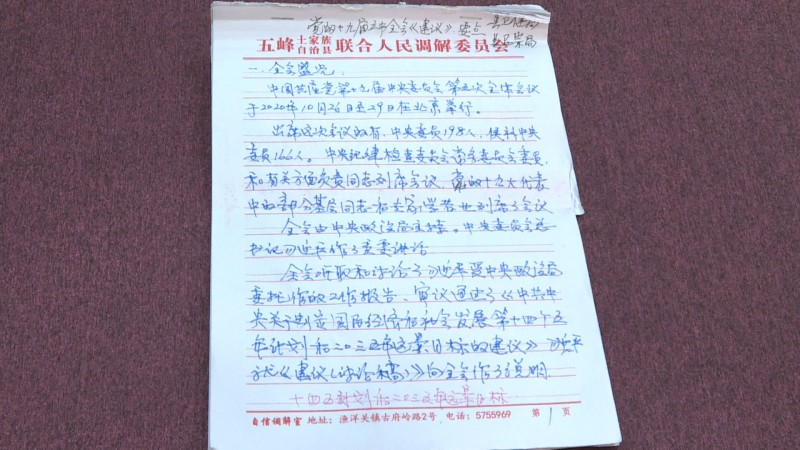 党的十九届五中全会《建议》要点
五峰土家族自治县联合人民调解委员会
一、全会盛况
中国共产党第十九届中央委员会第五次全体会议
于2020年10月26日至29日在北京举行。
出席这次会议的有,中央委员198人,候补中央
委员166人。中央纪律检查委员会常务委员会委员
和有关方面负责同志列席会议,党的十九大代表
中的部分基层同志和专家学者也列席了会议
全会由中央政治局主持。中央委员会总
书记习近平作了重要讲话
全会听取和讨论了习近平受中央政治局
委托作的工作报告、审议通过了《中共中
央关于制定国民经济和社会发展第十四个五
年计划和二〇三五年远景目标的建议》习近平
就《建议(讨论稿)》向全会作了说明
十四五计划和二〇三五年远景目标
自信调解室 地址:渔洋关镇古府岭路2号 电话:5755969 第1页